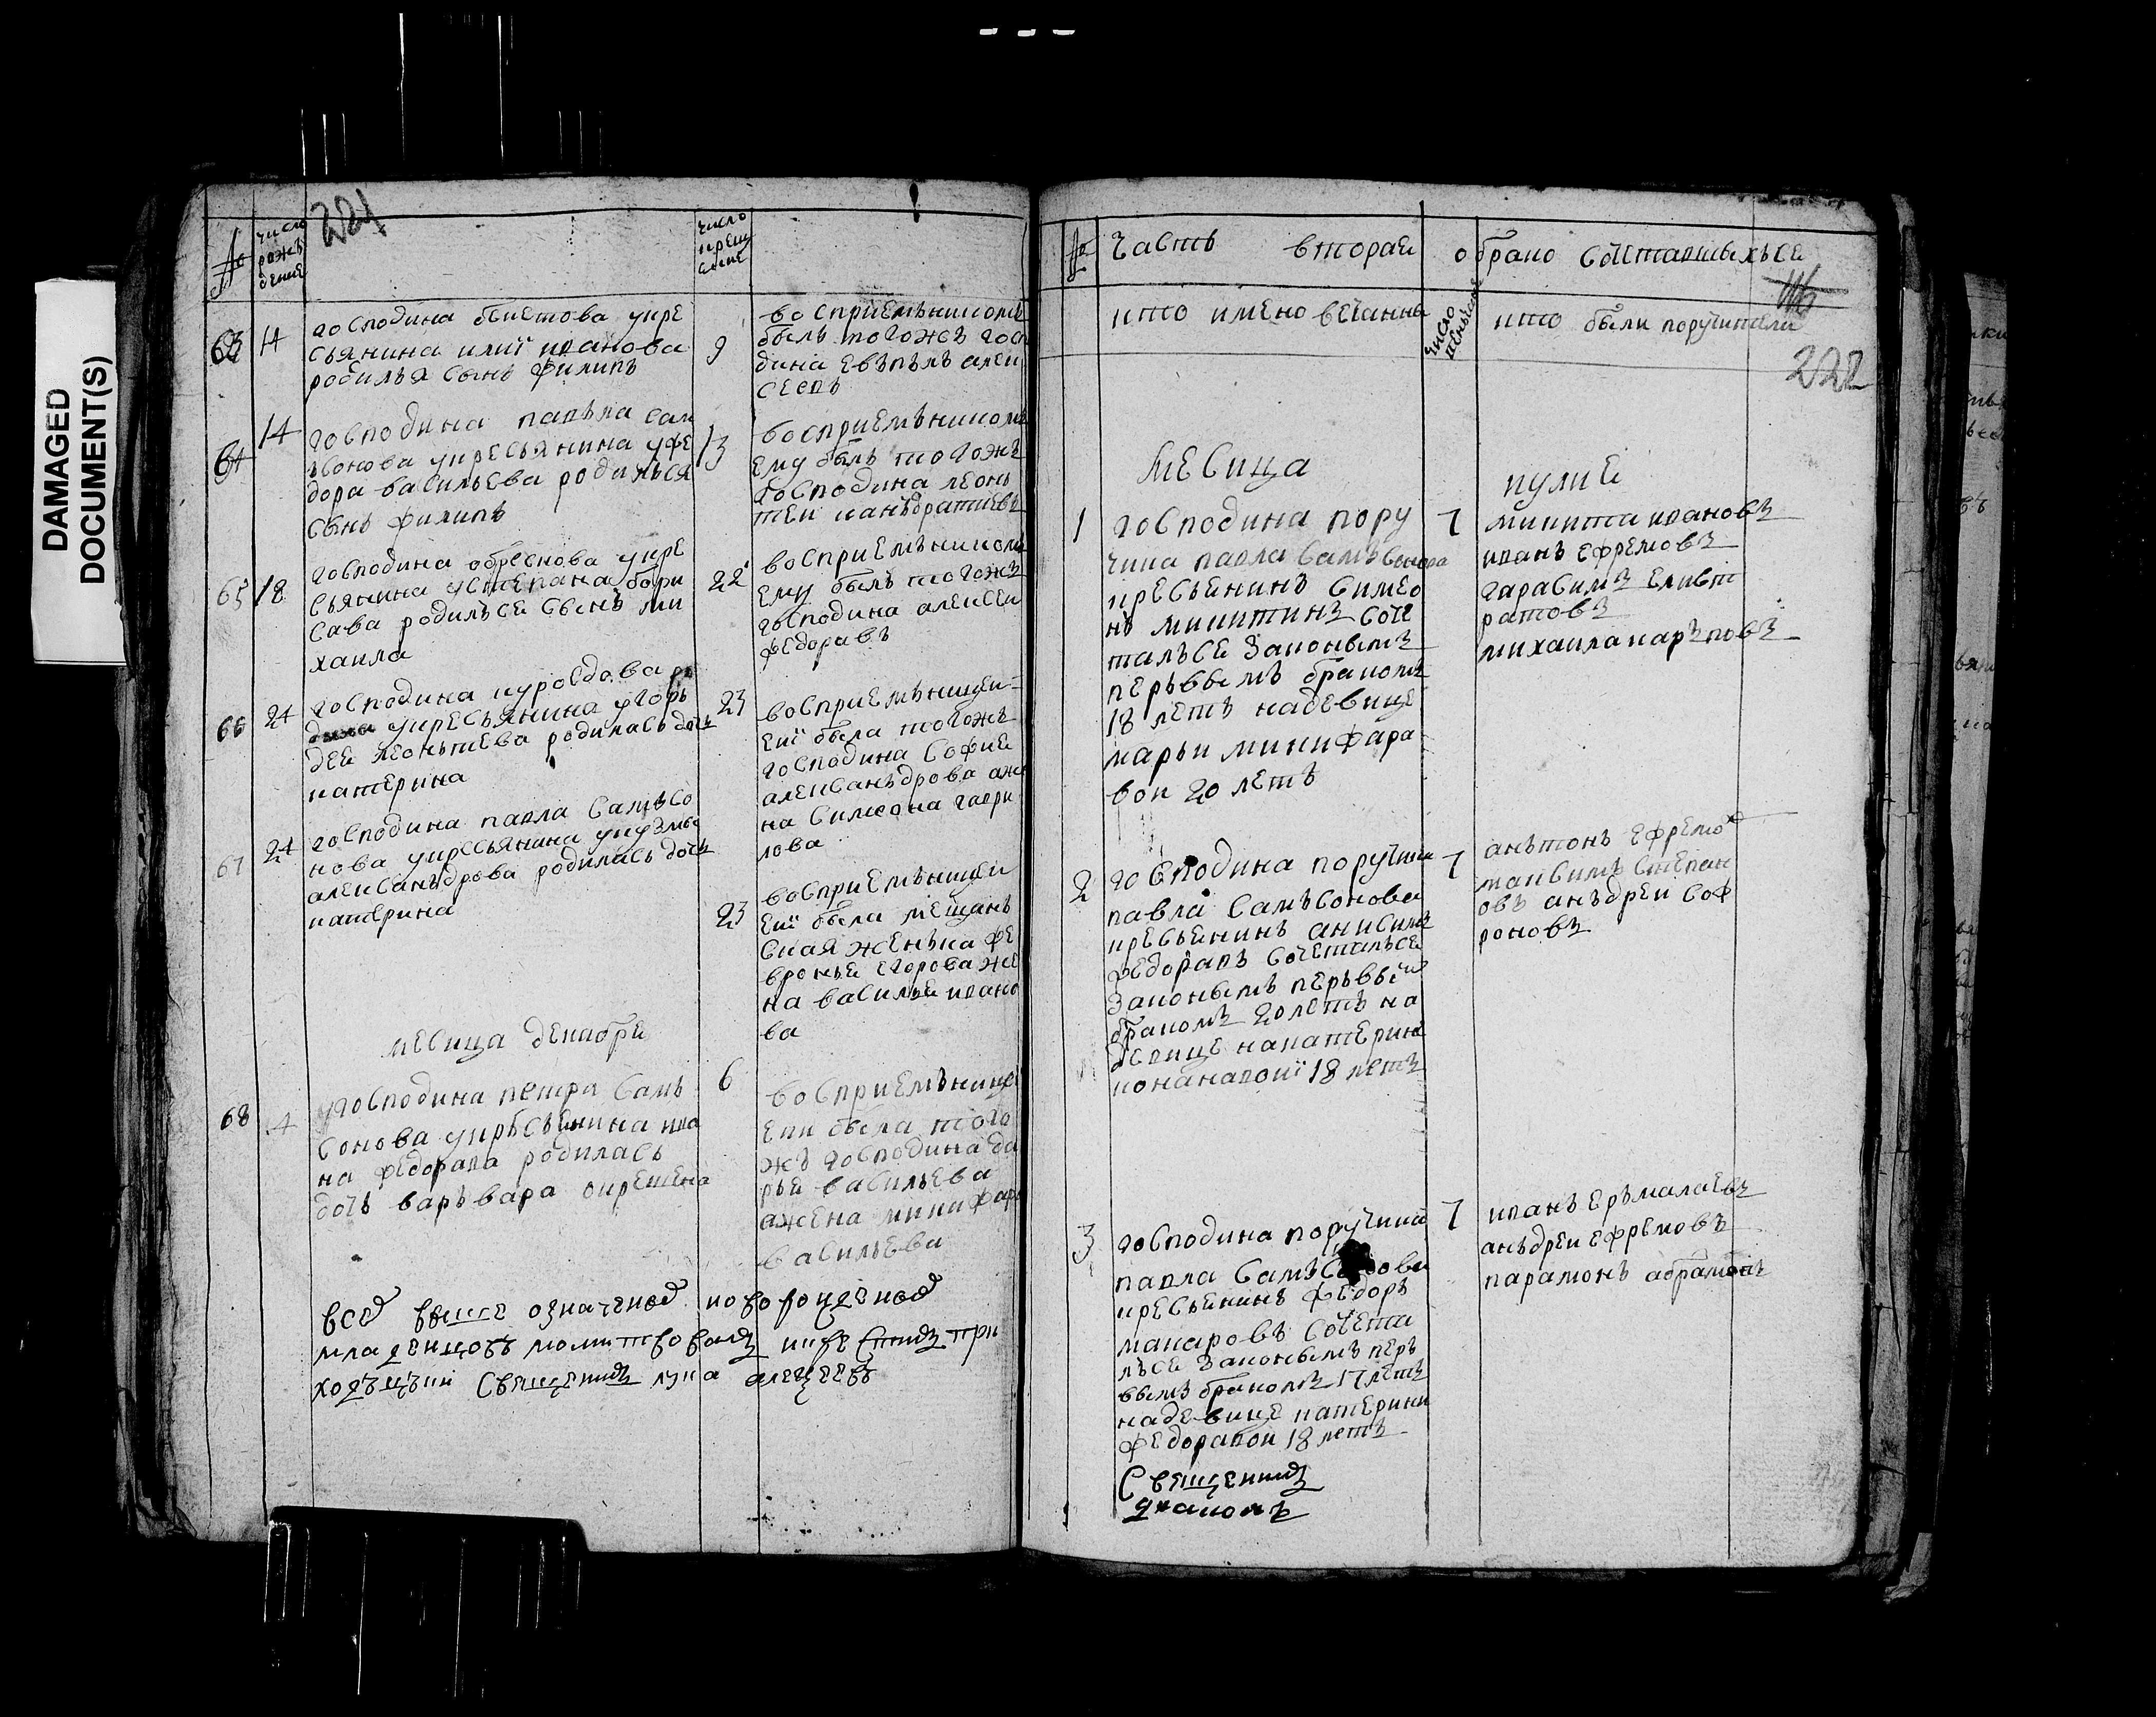 DAMAGED
DOCUMENT(S)
221
№
число
рожъ
дение
число
крещ
ение
63
14
господина бкетова укре
сьянина илиї иванова
родилъя сынъ филипъ
9
восприемъникомъ
былъ тогожъ госп
дина евъпълъ алек
сеевъ
64
14
господина павъла сам
ъсонова укресьянина уфе
дора васильева родилъся
сынъ филипъ
13
восприемъникомъ
ему былъ тогожъ
господина леонъ
теи канъдратиевъ
65
18
господина обрескова укре
сьянина устепана бори
сава родилъсе сынъ ми
хаила
22
восприемъникомъ
ему былъ тогожъ
господина алексеи
федоравъ
66
24
господина куроедова
укресьянина угоръ
деи леонътева родилась дочь
катерина
23
восприемънщеи
еиї была тогожъ
господина софие
алексанъдрова аже
на симеона гаври
лова
67
24
господина павла самъсо
нова укресьянина укузмы
алексанъдрова родилась дочь
катерина
23
восприемънщеи
еиї была мещанъ
ская женъка фе
вронье егорова же
на василье ивано
ва
месица декабре
68
4
угосподина петра самъ
сонова укръсьенина ива
на федорава родилась
дочь варъвара окрещена
6
восприемънице
еии была того
жъ господина да
рье васильева
ажена никифара
васильева
всѣ выше означеноѣ новорощеноѣ
младенцовъ молитвовалъ икрестилъ при
ходъщъии священикъ лука алеѯеевъ
№
часть вторае обрако сочетавшихъсе
116
кто имено венчаны
число
венчание
кто были поручители
222
месица июлие
1
господина пору
чика павла самъсонова
кресьенинъ симео
нъ микитинъ соче
талъсе законымъ
перъвымъ бракомъ
18 летъ надевице
марьи микифара
вои 20 летъ
7
микита ивановъ
иванъ ефремовъ
гарасимъ елист
ратовъ
михаила каръповъ
2
господина поручика
павла самъсонова
кресьенинъ анисимъ
федоравъ сочеталъсе
законымъ перъвымъ
бракомъ 20 летъ на
девице накатерине
конанавоиї 18 летъ
7
анътонъ ефремов
максимъ степан
овъ анъдреи соф
роновъ
3
господина поручика
павла самъсонова
кресьенинъ федоръ
макаровъ сочета
лъсе законымъ перъ
вымъ бракомъ 17 летъ
надевице катерини
федоравои 18 летъ
7
иванъ еръмалаевъ
анъдреи ефремовъ
парамонъ абрамовъ
Священикъ
дьакомъ